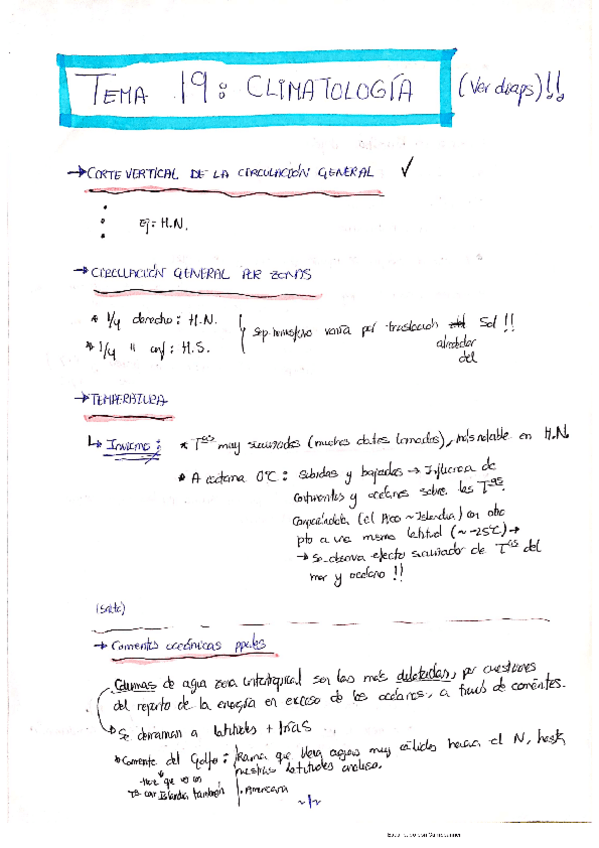 TEMA 19: CLIMATOLOGÍA (Ver diaps)!!
→ CORTE VERTICAL DE LA CIRCULACIÓN GENERAL ✓
Ej: H.N.
→ CIRCULACIÓN GENERAL POR ZONAS
* 1/4 derecho: H.N.
* 1/4 " inf: H.S.
varía por traslación Sol!!
alrededor
del
→ TEMPERATURA
↳ Invierno: * Tªs muy suavizadas (muchos datos tomados), más notable en H.N.
* A 0ºC: subidas y bajadas → Influencia de
continentes y océanos sobre las Tªs.
(el ~ Islandia) con otro
pto a una misma latitud (~ -25ºC) →
→ Se observa efecto suavizador de Tªs del
mar y océano!!
(Salto)
→ Corrientes oceánicas ppales
Columnas de agua zona intertropical son las más dilatadas, por cuestiones
del reparto de la energía en exceso de los océanos, a través de corrientes.
Se derraman a latitudes + frías
* Corriente del Golfo: Rama que lleva aguas muy cálidas hacia el N, hasta
nuestras latitudes incluso.
Hace que
Islandia también
~1~